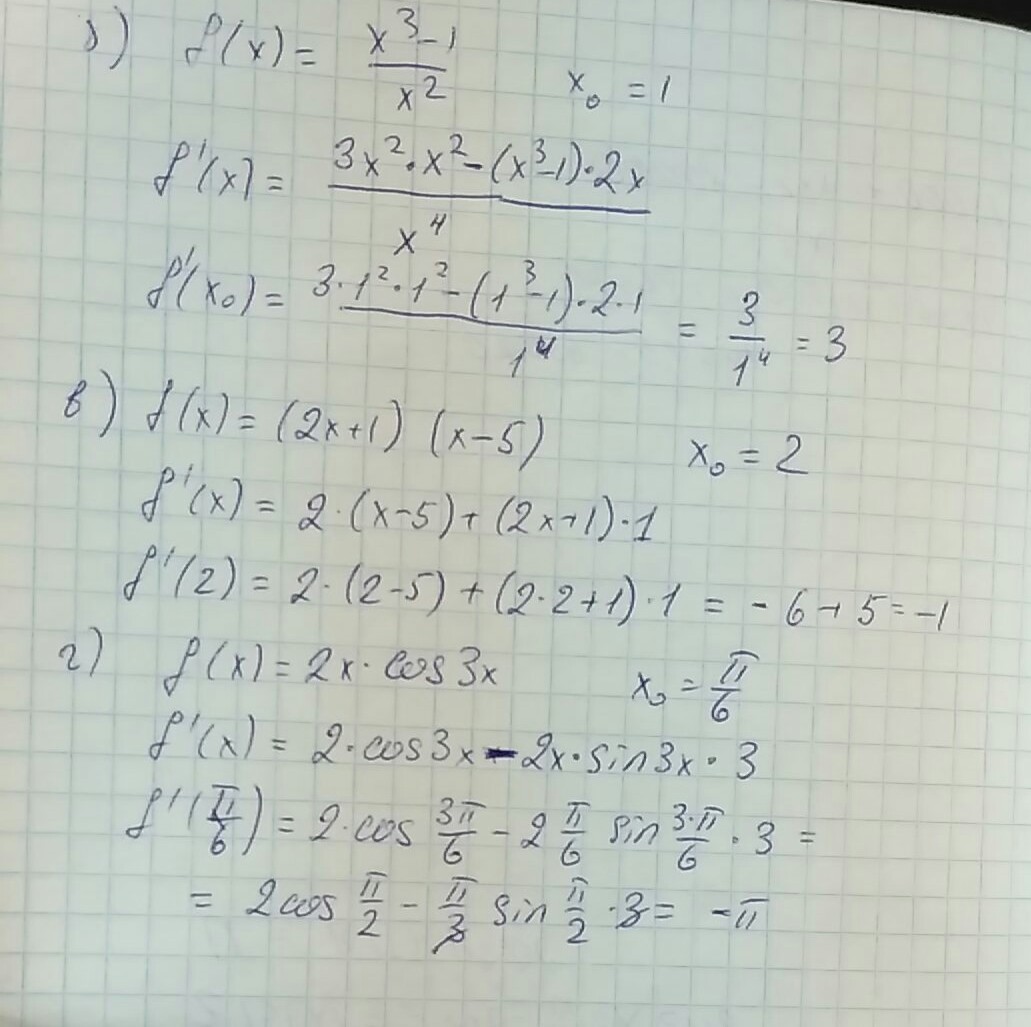 б) f(x) = (x³-1)/x²   x₀ = 1
f'(x) = (3x²·x² - (x³-1)·2x)/x⁴
f'(x₀) = (3·1²·1² - (1³-1)·2·1)/1⁴ = 3/1⁴ = 3
в) f(x) = (2x+1) (x-5)   x₀ = 2
f'(x) = 2·(x-5) + (2x+1)·1
f'(2) = 2·(2-5) + (2·2+1)·1 = -6+5 = -1
г) f(x) = 2x·cos3x   x₀ = π/6
f'(x) = 2·cos3x - 2x·sin3x·3
f'(π/6) = 2·cos 3π/6 - 2 π/6 sin 3·π/6 · 3 =
= 2cos π/2 - π/3 sin π/2 · 3 = -π